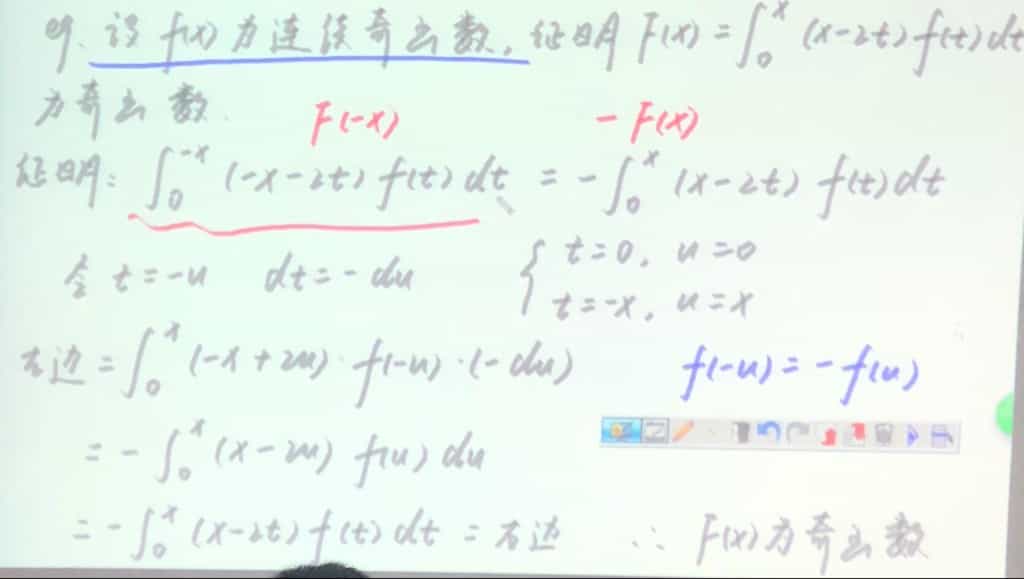 eg. 设 f(x) 为连续奇函数, 证明 F(x) = ∫₀ˣ (x-2t) f(t) dt
为奇函数.
F(-x) - F(x)
证明: ∫₀⁻ˣ (-x-2t) f(t) dt = -∫₀ˣ (x-2t) f(t) dt
令 t = -u dt = -du { t=0, u=0
t=-x, u=x
右边 = ∫₀ˣ (-x+2u) · f(-u) · (-du) f(-u) = -f(u)
= -∫₀ˣ (x-2u) f(u) du
= -∫₀ˣ (x-2t) f(t) dt = 右边 ∴ F(x) 为奇函数